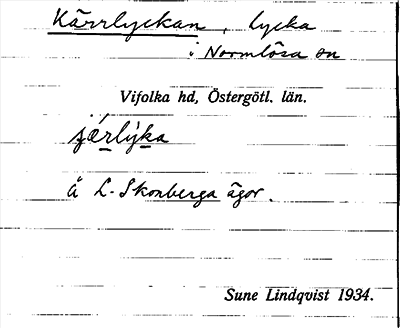 Kärrlyckan, lycka
i Normlösa sn
Vifolka hd, Östergötl. län.
å L. Skonberga ägor.
Sune Lindqvist 1934.